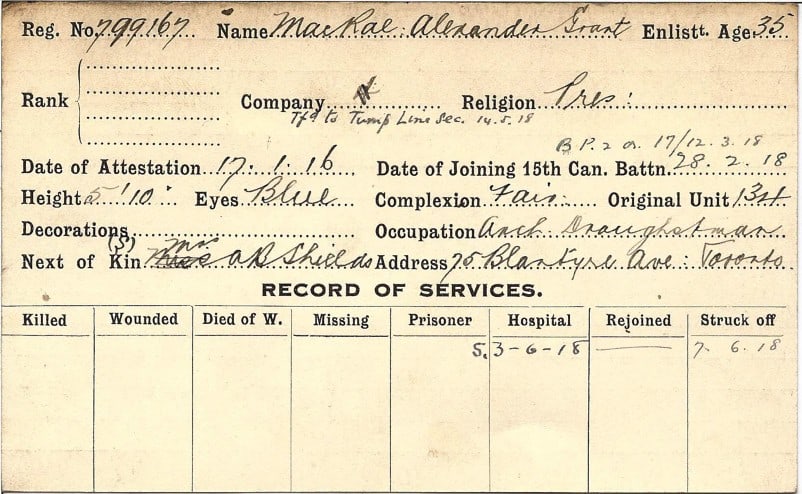 Reg. No. 799167 Name MacRae: Alexander Grant Enlistt. Age. 35
Rank Company Religion Pres:
Tfd to Tump Line Sec. 14.5.18
B P.2 o. 17/12.3.18
Date of Attestation 17.1.16 Date of Joining 15th Can. Battn. 28.2.18
Height 5'10" Eyes Blue Complexion Fair Original Unit
Decorations Occupation Arch Draughtsman
(S) Mrs
Next of Kin O B Shields Address 75 Blantyre Ave: Toronto
RECORD OF SERVICES.
Killed Wounded Died of W. Missing Prisoner Hospital Rejoined Struck off
S. 3-6-18 7.6.18